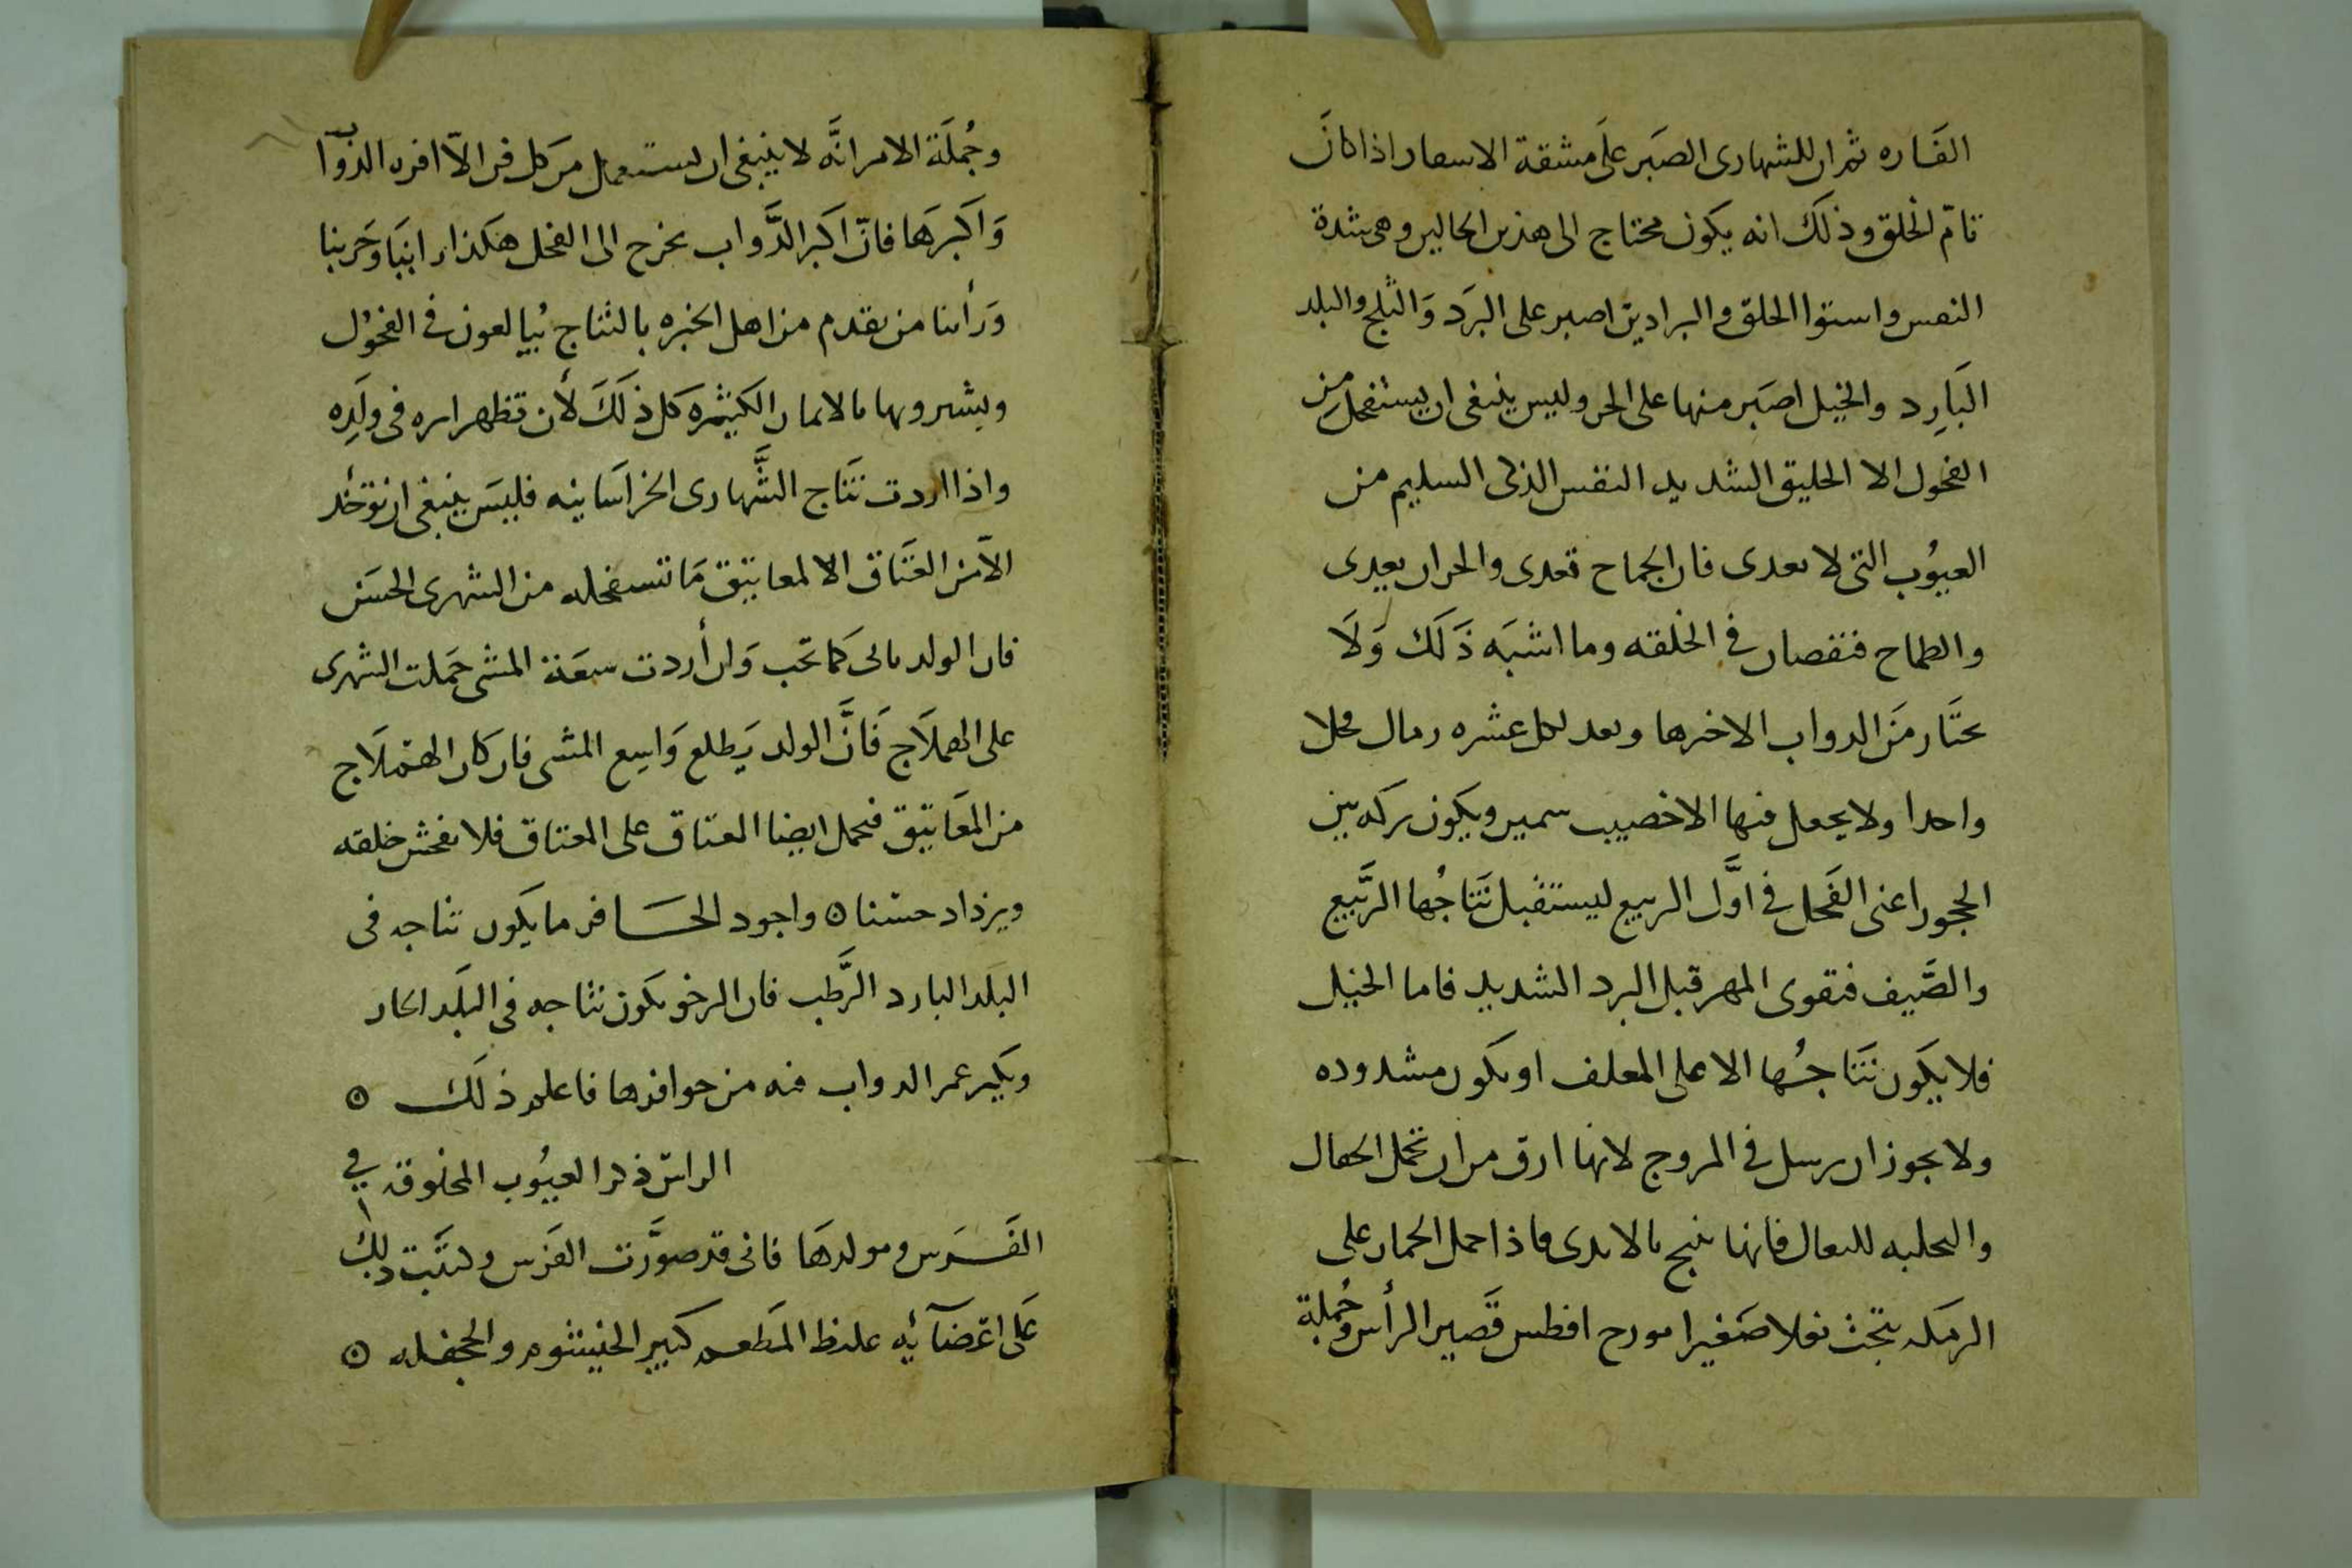 الفَاره ثم ان للشهارى الصَبر علَى مشقة الاسفار اذا كانَ
تامّ الخلق وذلكَ انه يكون محتاج الى هذين الحالين وهى شدة
النفس واستوا الخلق والبراذين اصبر على البَرَد وَالثلج والبلد
البَارِد والخيل اصبَر منها على الحر وليس ينبغى ان يستفحل مِن
الفحول الا الخليق الشديد النفس الذكى السليم من
العيُوب التى لا تعدى فان الجماح تعدى والحران يعدى
والطماح فنقصان فى الخلقه وما اشبَه ذَلكَ وَلَا
يختَار منَ الدواب الا خيرها ويعد لكل عشره رماك فحلا
واحدا ولا يجعل فيها الا خصيب سمين ويكون تركه بين
الحجور اعنى الفَحل فى اوَّل الربيع ليستقبل نتَاجُها الرَّبيع
والصَّيف فتقوى المهر قبل البرد الشديد فاما الخيل
فلا يكَون نتَاجُها الا على المعلف او يكون مشدوده
ولا يجوز ان ترسل فى المروج لانها ارق من ان تحمل
للبغال فانها تنتج بالايدى فاذا حمل الحمار على
الرمكه نتجت بغلا صَغيرا افطس قَصير الرأس وجُملة
وجُملَة الامر انَّه لا ينبغى ان يستعمل من كل فن الاّ افره الدوآب
وَاكبَرهَا فانّ اكبَر الدَّواب يخرج الى الفحل هكذا راينَا وَجَربنا
وَرأينا من تقدم من اهل الخبره بالنتاج يُبالغون فى الفحوُل
ويشترونها بالاثمان الكثيره كل ذلَكَ لأن تظهر اثره فى ولَدِه
واذا اردت نتَاج الشَّهارى الخراسَانيه فليسَ ينبغى ان توخَذ
الاّ من العتَاق الا لمعانيق مَا تستفحله من الشهرى الحسَن
فان الولد ياتى كَما تحب وَان أردت سعَة المشى حَملت الشهرى
على الهملَاج فَانَّ الولد يَطلع وَاسِع المشى فان كان الهمْلَاج
من المعَانيق فتحمل ايضا العتاق على العتاق فلا يفحش خلقه
ويزداد حسْنا ه واجود الحَافر ما يكَون نتاجه فى
البلَد البارد الرَّطب فان الرخو يكون نتاجه فى البلَد الحار
عمر الدواب فيه من حوافرها فاعلم ذلكَ ه
الراس ذكر العيُوب المخلوقه فى
الفَرَس ومولدهَا فانى قد صورَّت الفَرَس وكتَبت ذلك
عَلى اعْضَآئِه غليظ المَطعم كبير الخيشوم والجحفله ه